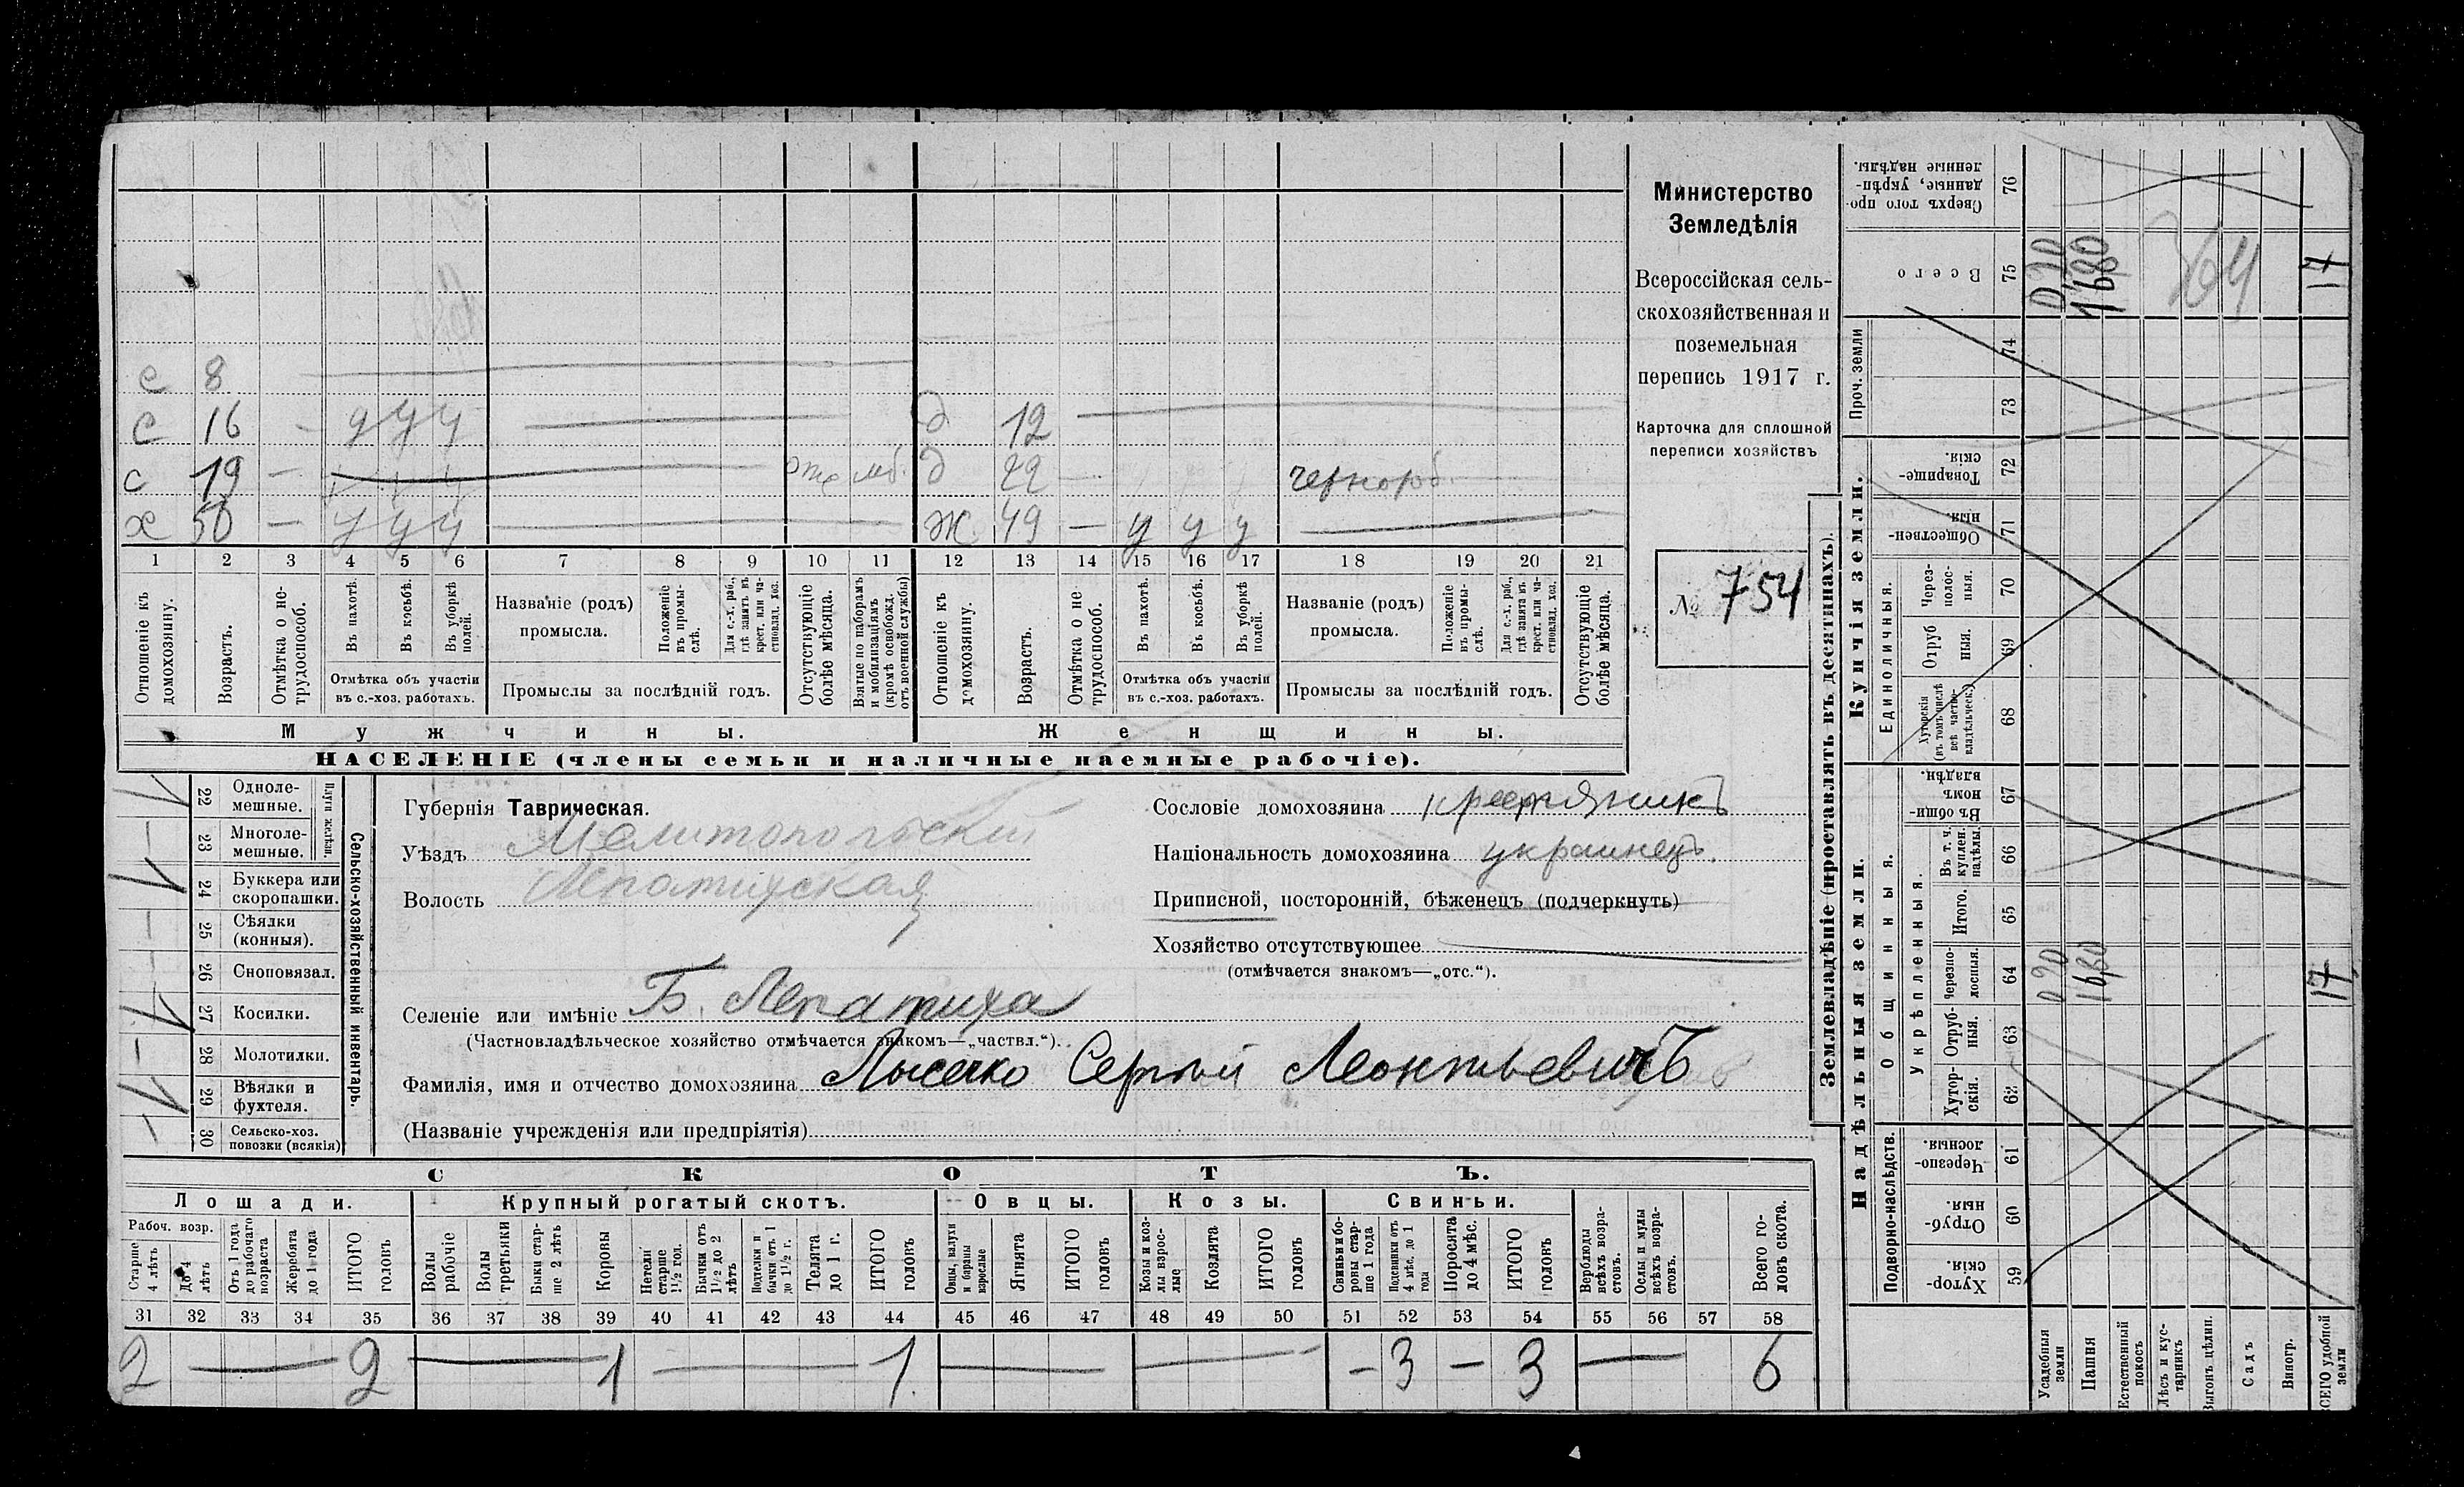 с 8
с 16 — у у у — д 12 —
с 19 — д 22 — чернораб.
х 50 — у у у — ж 49 — у у у —
1 2 3 4 5 6 7 8 9 10 11 12 13 14 15 16 17 18 19 20 21
Отношеніе къ домохозяину.
Возрастъ.
Отмѣтка о нетрудоспособ.
Въ пахотѣ.
Въ косьбѣ.
Въ уборкѣ полей.
Отмѣтка объ участіи въ с.-хоз. работахъ.
Названіе (родъ) промысла.
Положеніе въ промыслѣ.
Для с.-х. раб., гдѣ занятъ въ крест. или частновлад. хоз.
Промыслы за послѣдній годъ.
Отсутствующіе болѣе мѣсяца.
Взятые по наборамъ и мобилизаціямъ (кромѣ освобожд. отъ военной службы)
Отношеніе къ домохозяину.
Возрастъ.
Отмѣтка о нетрудоспособ.
Въ пахотѣ.
Въ косьбѣ.
Въ уборкѣ полей.
Отмѣтка объ участіи въ с.-хоз. работахъ.
Названіе (родъ) промысла.
Положеніе въ промыслѣ.
Для с.-х. раб., гдѣ занята въ крест. или частновлад. хоз.
Промыслы за послѣдній годъ.
Отсутствующіе болѣе мѣсяца.
Мужчины.
Женщины.
НАСЕЛЕНІЕ (члены семьи и наличные наемные рабочіе).
Министерство
Земледѣлія
Всероссійская сель-
скохозяйственная и
поземельная
перепись 1917 г.
Карточка для сплошной
переписи хозяйствъ
№ 754
Сельско-хозяйственный инвентарь.
Плуги желѣзн.
22 Однолемешные.
23 Многолемешные.
24 Буккера или скоропашки.
25 Сѣялки (конныя).
26 Сноповязал.
27 Косилки.
28 Молотилки.
29 Вѣялки и фухтеля.
30 Сельско-хоз. повозки (всякія)
Губернія Таврическая.
Уѣздъ Мелитопольскій
Волость Лепатихская
Сословіе домохозяина крестьяникъ
Національность домохозяина украинецъ.
Приписной, посторонній, бѣженецъ (подчеркнуть)
Хозяйство отсутствующее
(отмѣчается знакомъ—„отс.“).
Селеніе или имѣніе Б. Лепатиха
(Частновладѣльческое хозяйство отмѣчается знакомъ—„частвл.“).
Фамилія, имя и отчество домохозяина Лысенко Сергѣй Леонтьевичъ
(Названіе учрежденія или предпріятія)
СКОТЪ.
Лошади. Крупный рогатый скотъ. Овцы. Козы. Свиньи.
Рабоч. возр.
Старше 4 лѣтъ
До 4 лѣтъ
Отъ 1 года до рабочаго возраста
Жеребята до 1 года
ИТОГО головъ
Волы рабочіе
Волы третьяки
Быки старше 2 лѣтъ
Коровы
Нетели старше 1½ год.
Бычки отъ 1½ до 2 лѣтъ
Подтелки и бычки отъ 1 до 1½ г.
Телята до 1 г.
ИТОГО головъ
Овцы, валухи и бараны взрослые
Ягнята
ИТОГО головъ
Козы и козлы взрослые
Козлята
ИТОГО головъ
Свиньи и боровы старше 1 года
Подсвинки отъ 4 мѣс. до 1 года
Поросята до 4 мѣс.
ИТОГО головъ
Верблюды всѣхъ возрастовъ.
Ослы и мулы всѣхъ возрастовъ.
Всего головъ скота.
31 32 33 34 35 36 37 38 39 40 41 42 43 44 45 46 47 48 49 50 51 52 53 54 55 56 57 58
2 — 2 — 1 — 1 — — — 3 — 3 — 6
Землевладѣніе (проставлять въ десятинахъ).
Купчія земли.
Надѣльныя земли.
Сверхъ того проданные, укрѣпленные надѣлы. 76
Всего 75 0,20 1680 364 17
Проч. земли 74
73
Товарищескія. 72
Общественныя. 71
Единоличныя.
Черезполосныя. 70
Отрубныя. 69
Хуторскія (въ томъ числѣ всѣ частновладѣльческ.) 68
Общинныя.
Въ общинномъ владѣн. 67
Укрѣпленныя.
Въ т. ч. куплен. надѣлы. 66
Итого. 65
Черезполосныя. 64 1680 17
Отрубныя. 63
Хуторскія. 62
Подворно-наслѣдств.
Черезполосныя. 61
Отрубныя. 60
Хуторскія. 59
Усадебныя земли
Пашня
Естественный покосъ
Лѣсъ и кустарникъ
Выгонъ цѣлин.
Садъ
Виногр.
ВСЕГО удобной земли